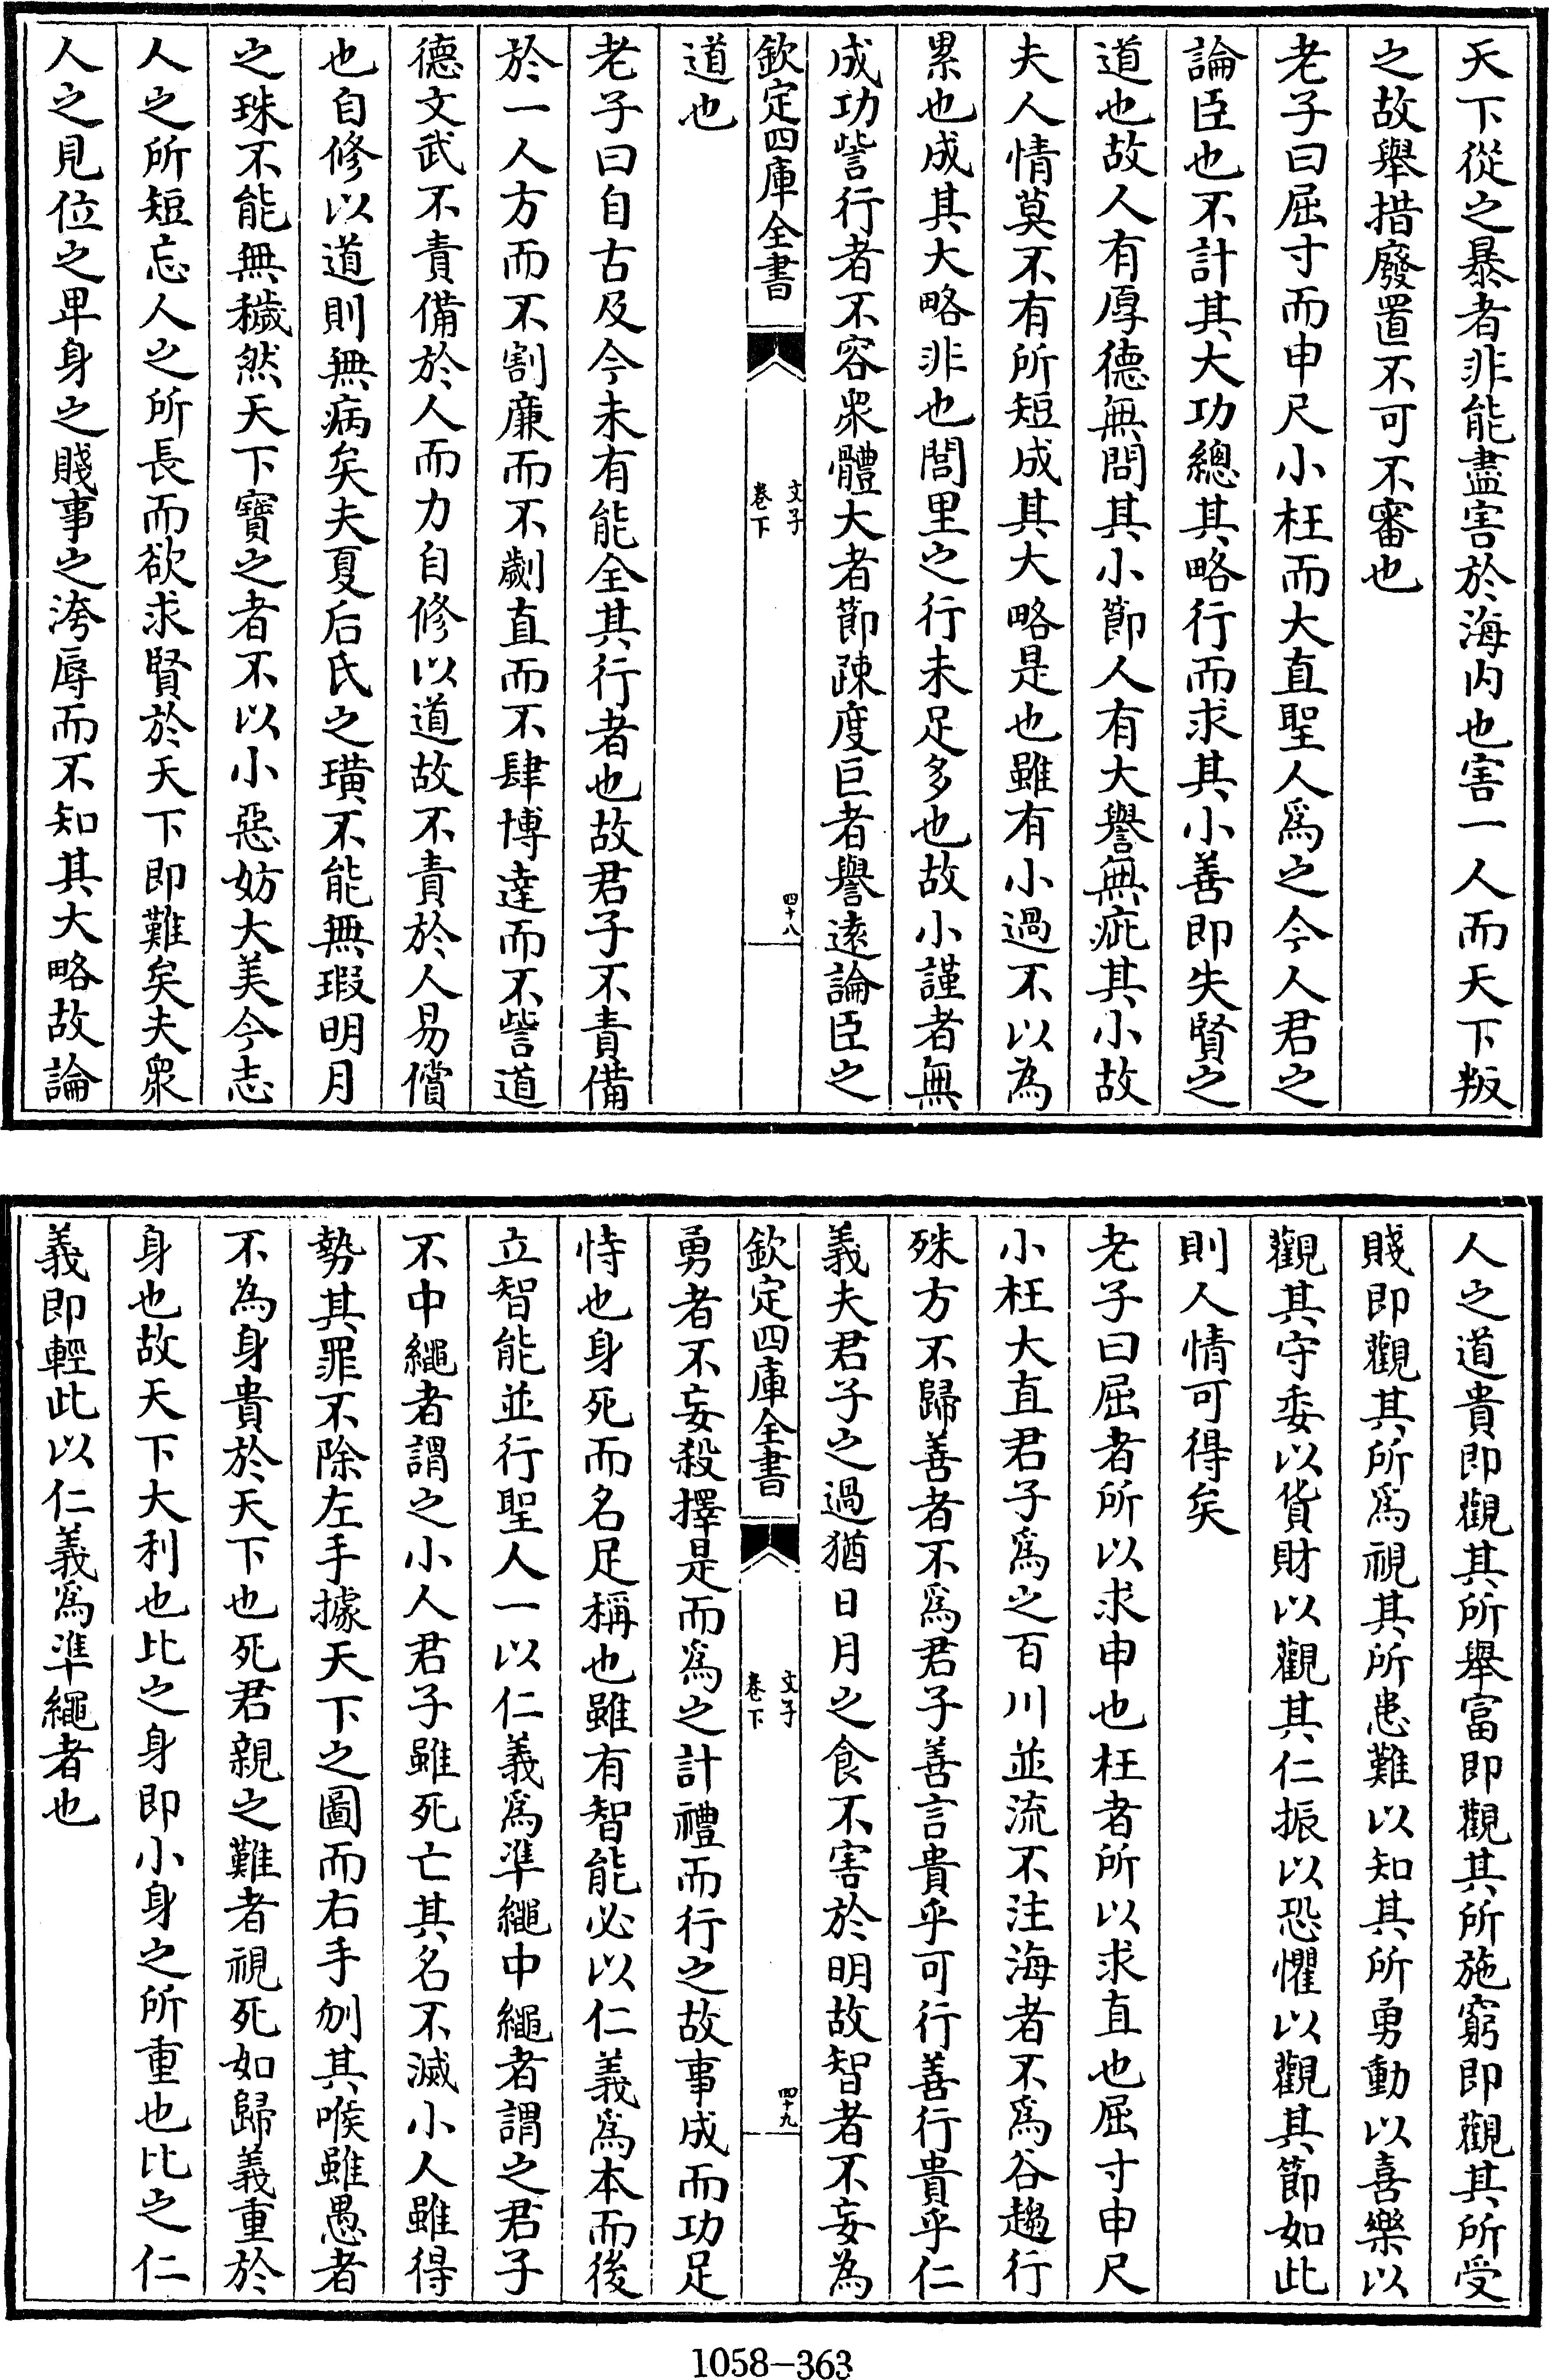 天下從之暴者非能盡害於海内也害一人而天下叛
之故舉措廢置不可不審也
老子曰屈寸而申尺小枉而大直聖人爲之今人君之
論臣也不計其大功總其略行而求其小善即失賢之
道也故人有厚德無問其小節人有大譽無疵其小故
夫人情莫不有所短成其大略是也雖有小過不以為
累也成其大略非也閭里之行未足多也故小謹者無
成功訾行者不容衆體大者節疎度巨者譽遠論臣之
欽定四庫全書
文子
卷下
四十八
道也
老子曰自古及今未有能全其行者也故君子不責備
於一人方而不割廉而不劌直而不肆博達而不訾道
德文武不責備於人而力自修以道故不責於人易償
也自修以道則無病矣夫夏后氏之璜不能無瑕明月
之珠不能無穢然天下寶之者不以小惡妨大美今志
人之所短忘人之所長而欲求賢於天下即難矣夫衆
人之見位之卑身之賤事之洿辱而不知其大略故論
人之道貴即觀其所舉富即觀其所施窮即觀其所受
賤即觀其所爲視其所患難以知其所勇動以喜樂以
觀其守委以貨財以觀其仁振以恐懼以觀其節如此
則人情可得矣
老子曰屈者所以求申也枉者所以求直也屈寸申尺
小枉大直君子爲之百川並流不注海者不爲谷趨行
殊方不歸善者不爲君子善言貴乎可行善行貴乎仁
義夫君子之過猶日月之食不害於明故智者不妄為
欽定四庫全書
文子
卷下
四十九
勇者不妄殺擇是而爲之計禮而行之故事成而功足
恃也身死而名足稱也雖有智能必以仁義爲本而後
立智能並行聖人一以仁義爲準繩中繩者謂之君子
不中繩者謂之小人君子雖死亡其名不滅小人雖得
勢其罪不除左手據天下之圖而右手刎其喉雖愚者
不為身貴於天下也死君親之難者視死如歸義重於
身也故天下大利也比之身即小身之所重也比之仁
義即輕此以仁義爲準繩者也
1058-363